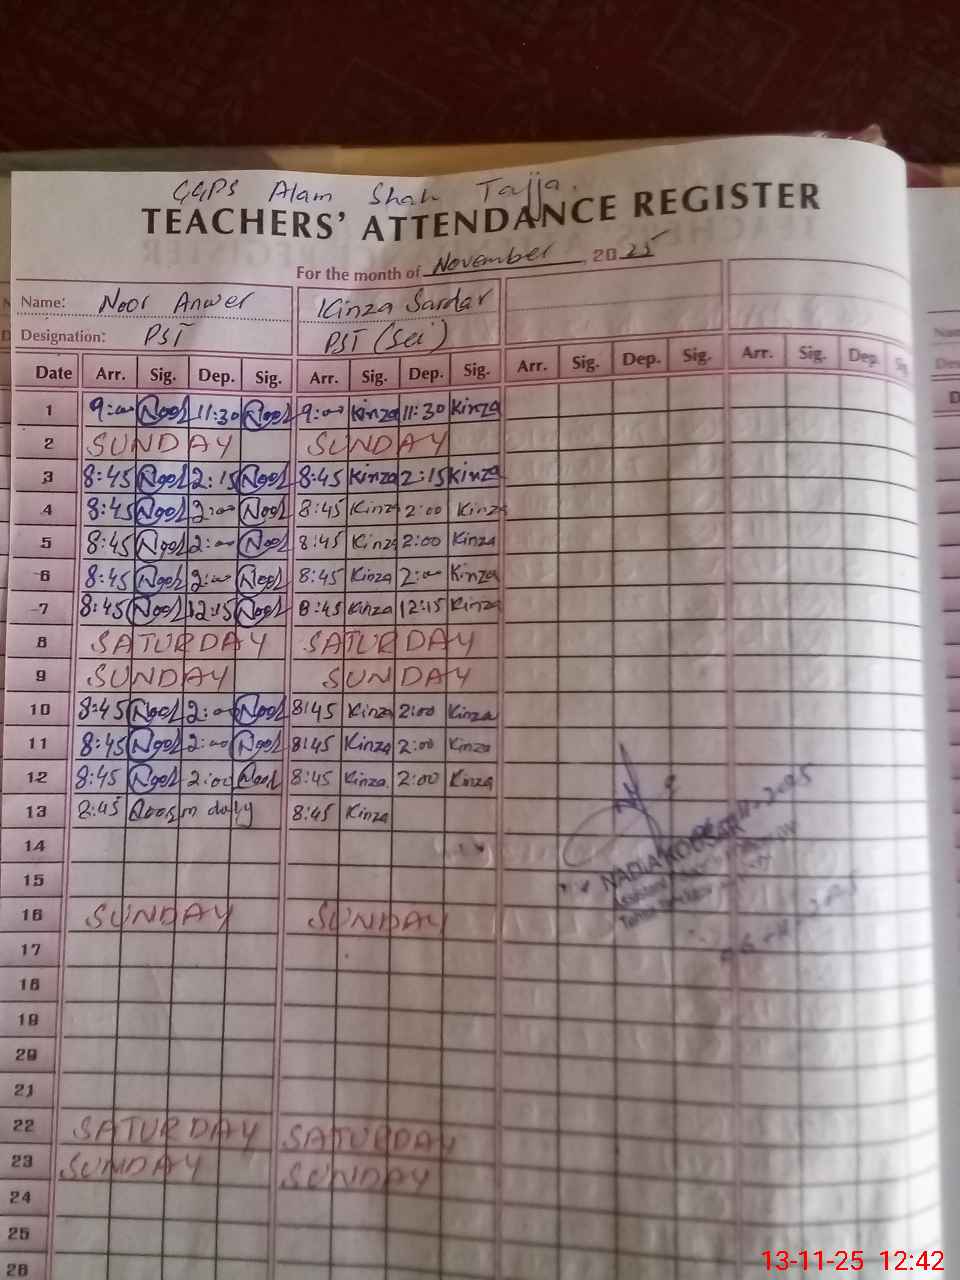 GGPS Alam Shah Tajja.
TEACHERS' ATTENDANCE REGISTER
For the month of November, 2025
Name: Noor Anwer Kinza Sardar
Designation: PST PST (Sci)
Date Arr. Sig. Dep. Sig. Arr. Sig. Dep. Sig. Arr. Sig. Dep. Sig. Arr. Sig. Dep.
1 9:00 Noor 11:30 Noor 9:00 Kinza 11:30 Kinza
2 SUNDAY SUNDAY
3 8:45 Noor 2:15 Noor 8:45 Kinza 2:15 Kinza
4 8:45 Noor 2:00 Noor 8:45 Kinza 2:00 Kinza
5 8:45 Noor 2:00 Noor 8:45 Kinza 2:00 Kinza
6 8:45 Noor 2:00 Noor 8:45 Kinza 2:00 Kinza
7 8:45 Noor 12:15 Noor 8:45 Kinza 12:15 Kinza
8 SATURDAY SATURDAY
9 SUNDAY SUNDAY
10 8:45 Noor 2:00 Noor 8:45 Kinza 2:00 Kinza
11 8:45 Noor 2:00 Noor 8:45 Kinza 2:00 Kinza
12 8:45 Noor 2:00 Noor 8:45 Kinza 2:00 Kinza
13 8:45 Noor on duty 8:45 Kinza
14
15
16 SUNDAY SUNDAY
17
18
19
20
21
22 SATURDAY SATURDAY
23 SUNDAY SUNDAY
24
25
26
NADIA KOUSAR
13-11-25 12:42